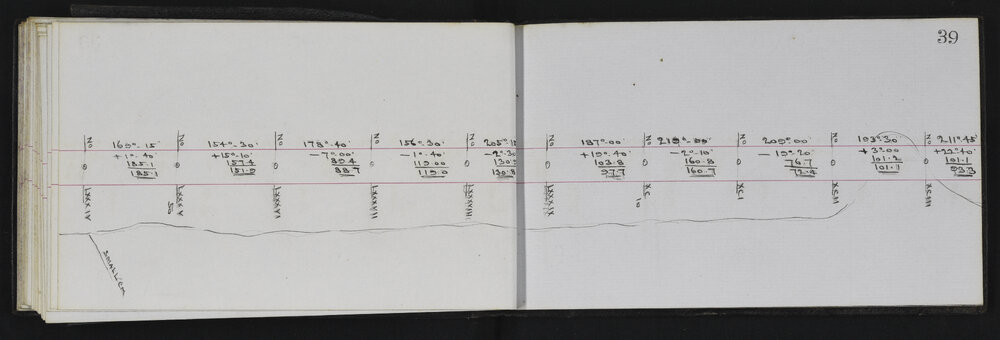 39
No 169°.15' No 154°.30' No 178°.40' No 156°.30' No 205°.15 No 187°.00' No 219°.00' No 209°.00' No 193°.30 No 211°.45'
+1°.40' +15°.10' -7°.00' -1°.40' -2°.30 +19°.40' -2°.10' -19°.20' +3°.00 +22°.40'
O 185.1 O 157.4 O 89.4 O 119.00 O 130.9 O 103.8 O 160.8 O 76.7 O 101.2 O 101.1
185.1 151.9 88.7 119.0 130.8 97.7 160.7 72.4 101.1 93.3
LXXXIV LXXXV LXXXVI LXXXVII LXXXVIII LXXXIX XC XCI XCII XCIII
50 10
SMALL CK